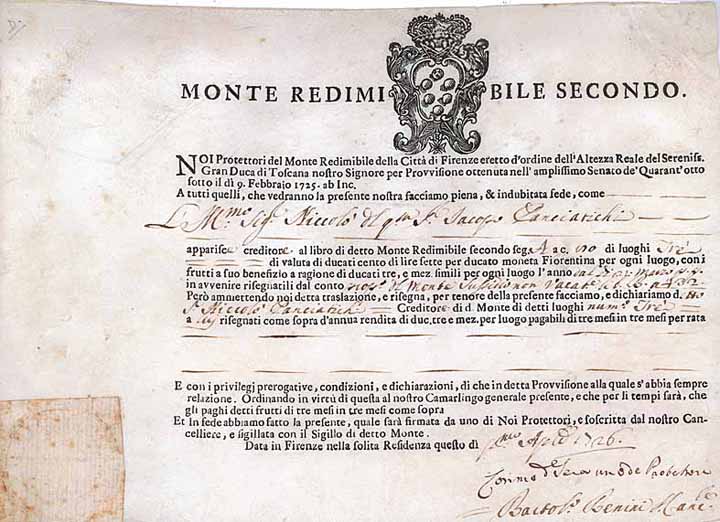 MONTE REDIMIBILE SECONDO.
NOI Protettori del Monte Redimibile della Città di Firenze eretto d'ordine dell'Altezza Reale del Sereniss.
Gran Duca di Toscana nostro Signore per Provvisione ottenuta nell'amplissimo Senato de' Quarant'otto
sotto il dì 9. Febbraio 1725. ab Inc.
A tutti quelli, che vedranno la presente nostra facciamo piena, & indubitata fede, come
Niccolò Jacopo Panciatichi
apparisce creditore al libro di detto Monte Redimibile secondo seg. A ac. di luoghi Tre
di valuta di ducati cento di lire sette per ducato moneta Fiorentina per ogni luogo, con i
frutti a suo benefizio a ragione di ducati tre, e mez. simili per ogni luogo l'anno
in avvenire risegnatili dal conto del Monte Sussidio non Vacabile
Però ammettendo noi detta traslazione, e risegna, per tenore della presente facciamo, e dichiariamo d.
Niccolò Panciatichi Creditore di d. Monte di detti luoghi num.º Tre
a risegnati come sopra d'annua rendita di duc. tre e mez. per luogo pagabili di tre mesi in tre mesi per rata
E con i privilegj prerogative, condizioni, e dichiarazioni, di che in detta Provvisione alla quale s'abbia sempre
relazione. Ordinando in virtù di questa al nostro Camarlingo generale presente, e che per li tempi sarà, che
gli paghi detti frutti di tre mesi in tre mesi come sopra
Et in fede abbiamo fatto la presente, quale sarà firmata da uno di Noi Protettori, e soscritta dal nostro Can-
celliere, e sigillata con il Sigillo di detto Monte.
Data in Firenze nella solita Residenza questo dì 1726.
uno de
Bartol.º Benini Canc.